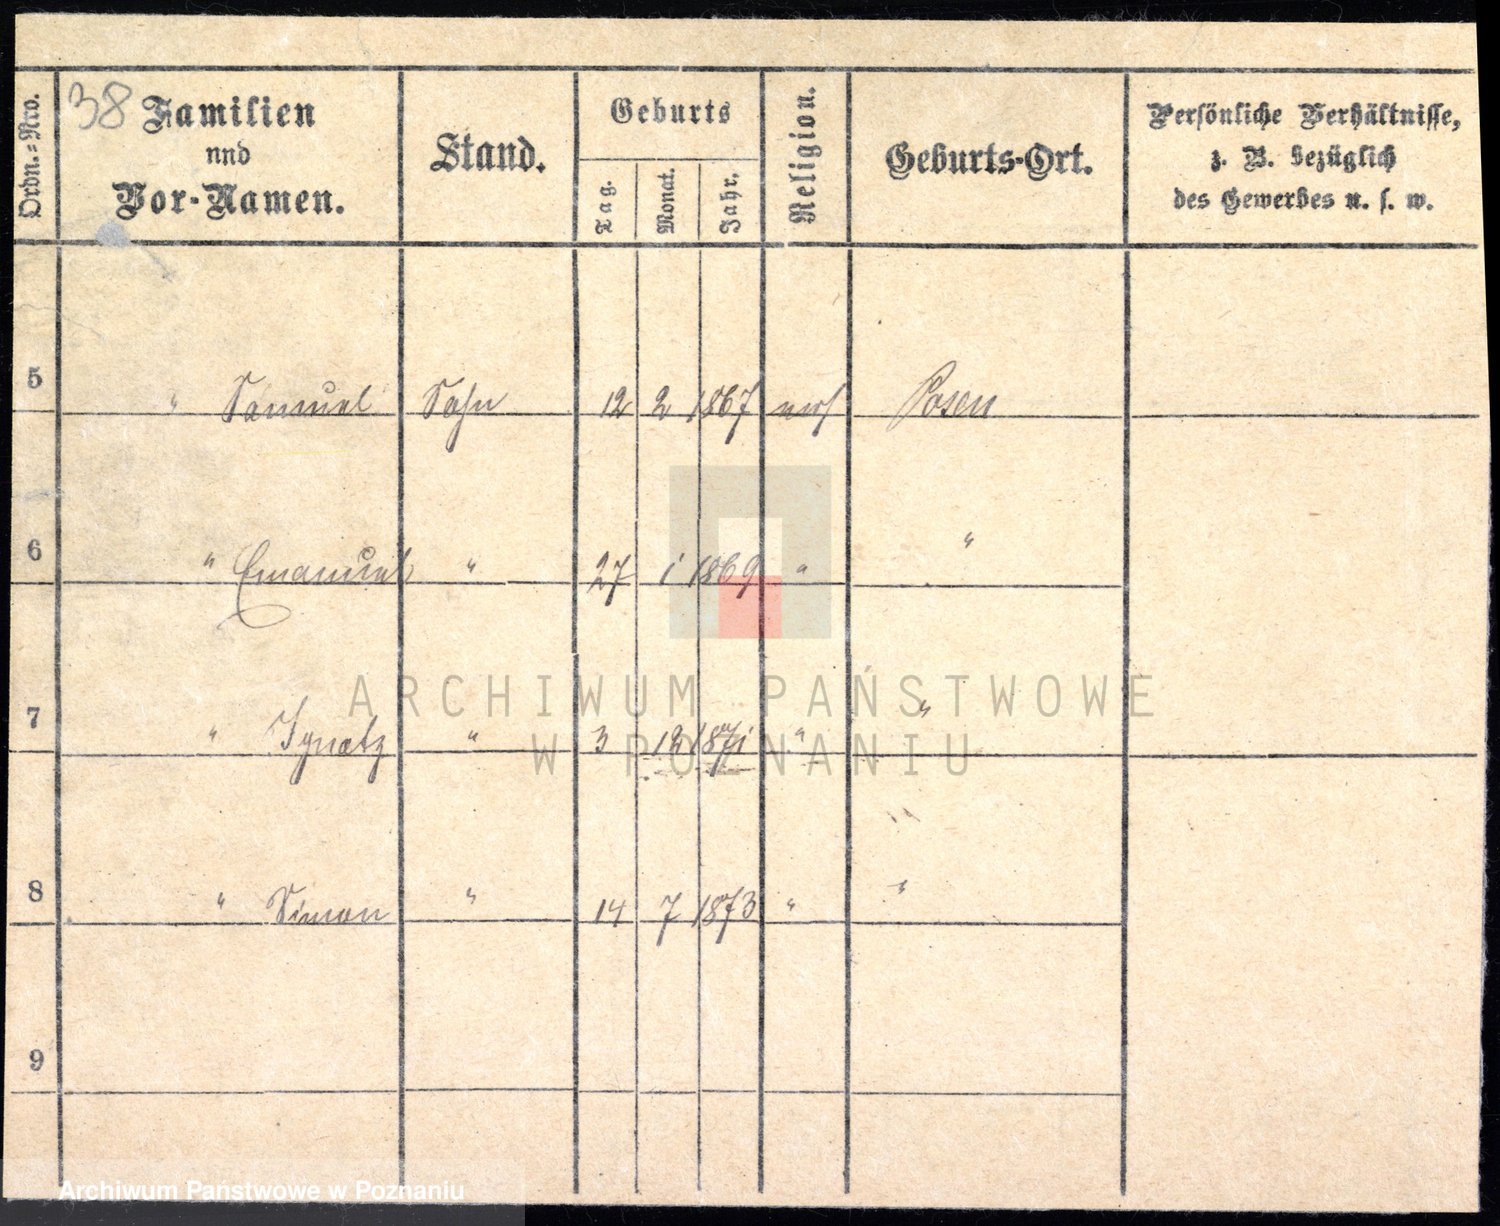 38
Ordn.=Nro.
Familien
nnd
Vor-Namen.
Stand.
Geburts
Tag.
Monat.
Jahr.
Religion.
Geburts-Ort.
Persönliche Verhältnisse,
z. B. bezüglich
des Gewerbes u. s. w.
5 " Samuel Sohn 12 2 1867 Posen
6 " Emanuel " 27 1 1869 " "
7 " Ignatz " 3 12 1871 " "
8 " Simon " 14 7 1873 " "
9
ARCHIWUM PAŃSTWOWE
W POZNANIU
Archiwum Państwowe w Poznaniu